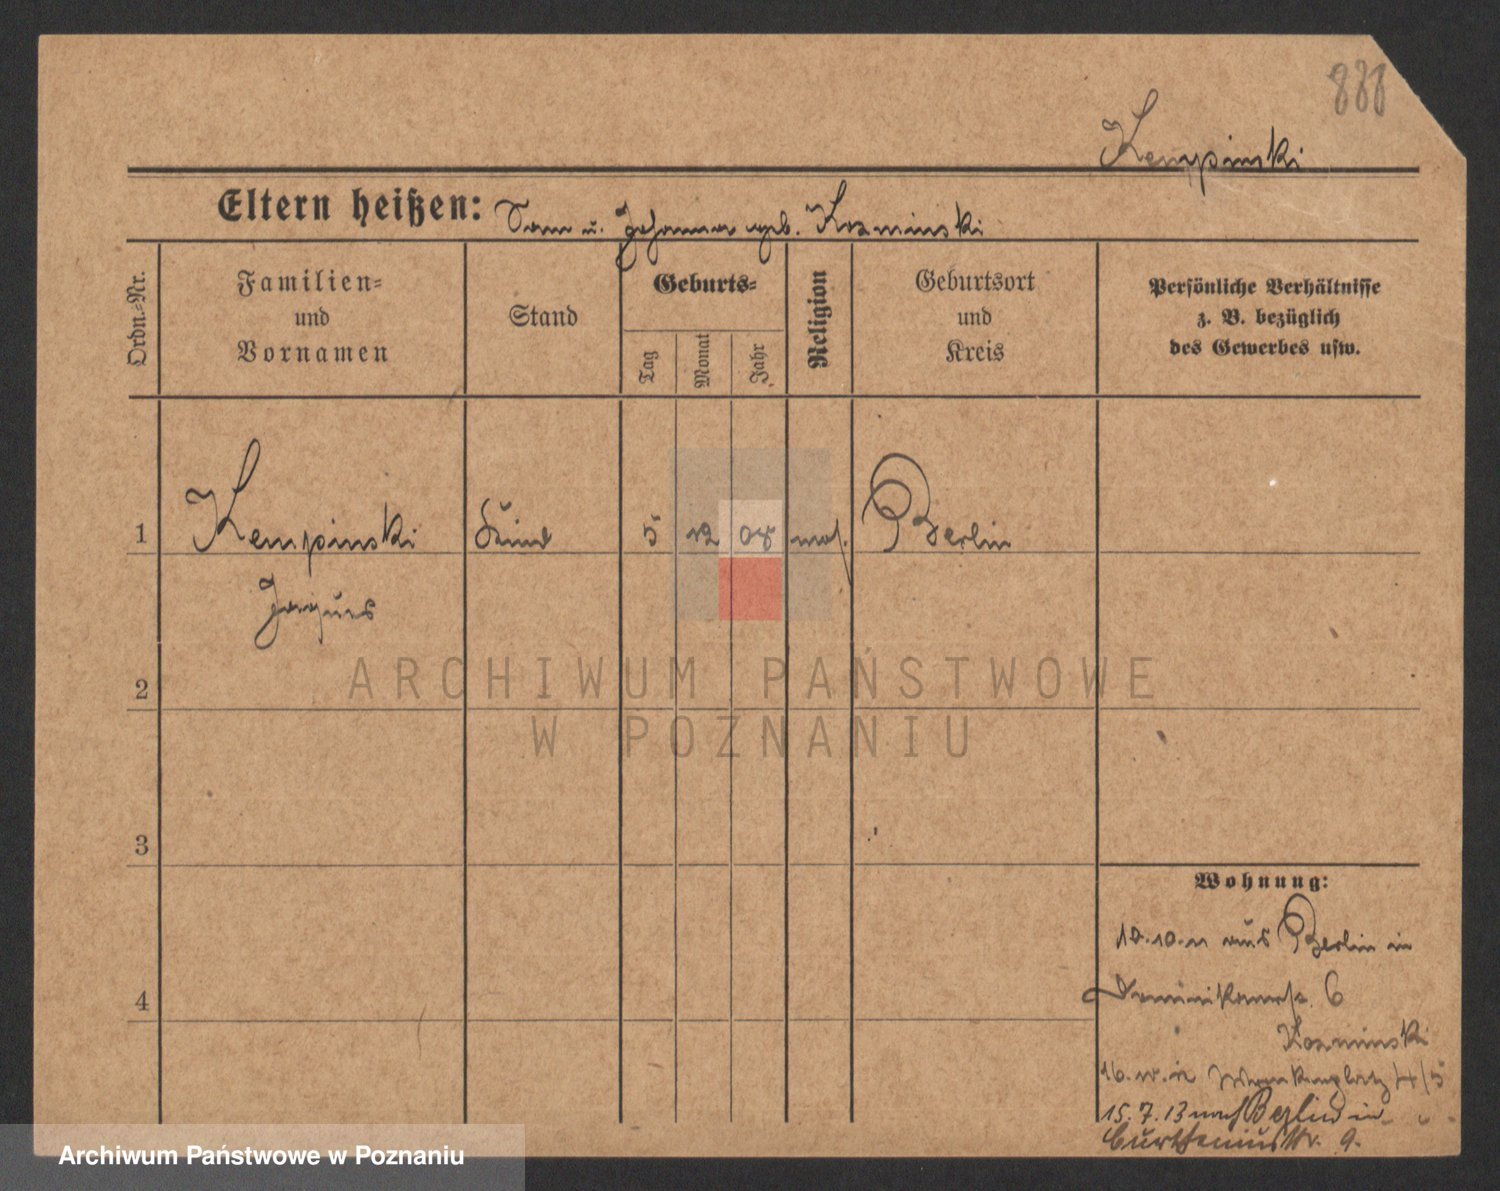 888
Kempinski
Eltern heißen: u. Johanna geb. Kozminski
Ordn.-Nr.
Familien-
und
Vornamen
Stand
Geburts-
Tag
Monat
Jahr
Religion
Geburtsort
und
Kreis
Persönliche Verhältnisse
z. B. bezüglich
des Gewerbes usw.
1
Kempinski
Kind
5
12
08
mos.
Berlin
Jaques
2
3
4
Wohnung:
10.10.11 aus Berlin in
Dominikanerstr. 6
Kozminski
4/5
15.7.13 nach Berlin in
9.
ARCHIWUM PAŃSTWOWE
W POZNANIU
Archiwum Państwowe w Poznaniu